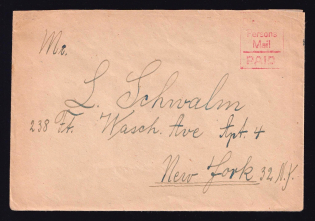 Mr.
Persons
Mail
PAID
L. Schwalm
238 Ft. Wasch. Ave Apt. 4
New York 32 N.Y.